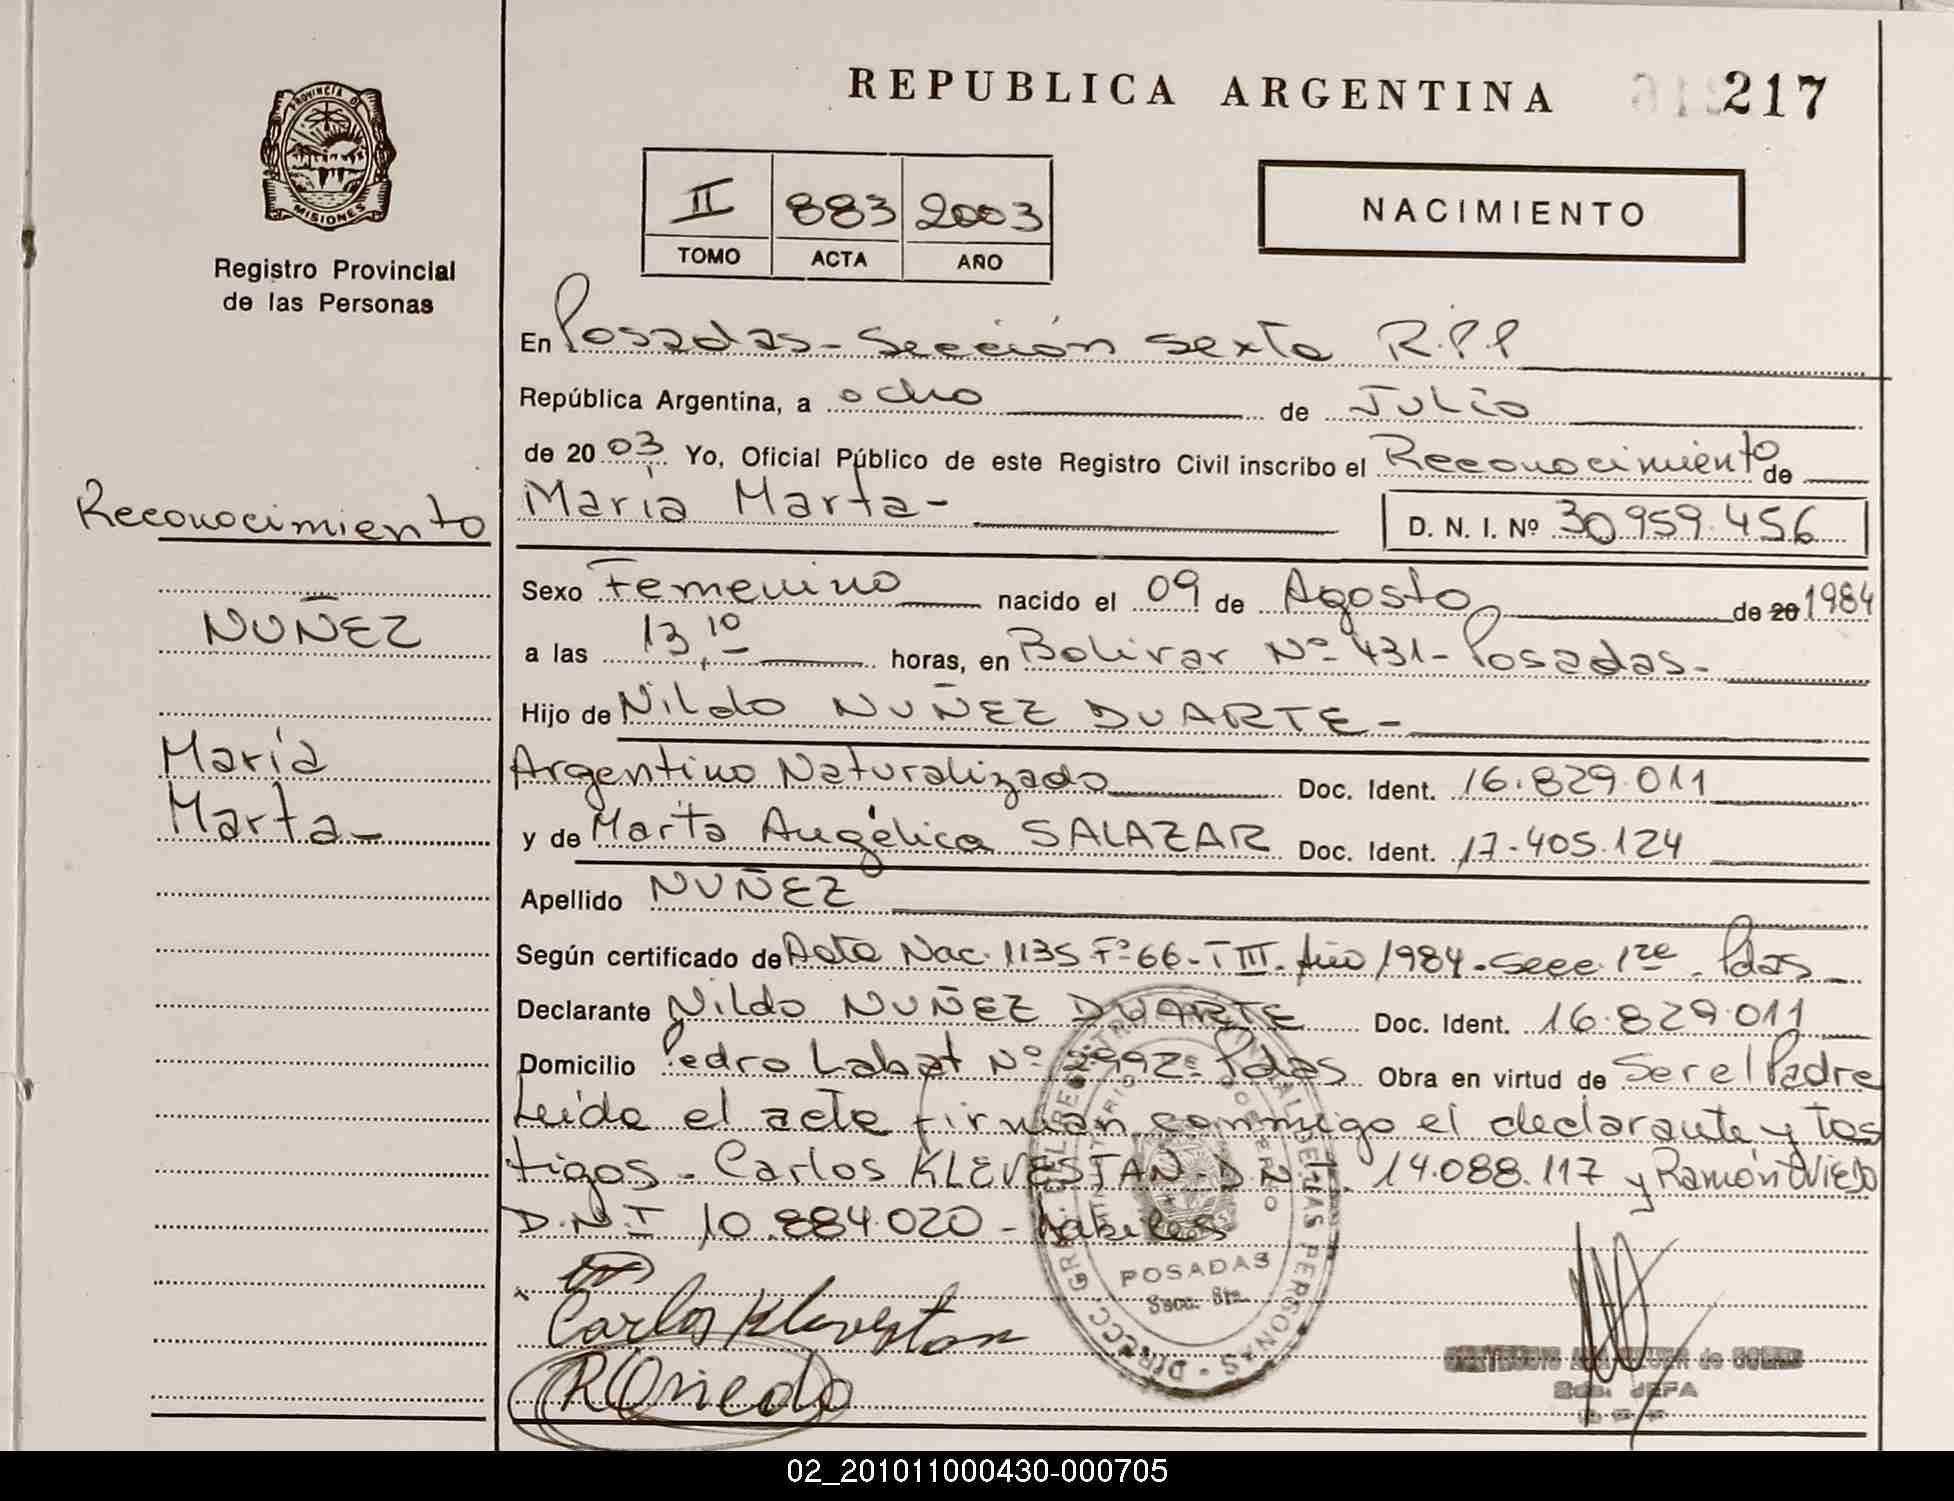 REPUBLICA ARGENTINA 217
PROVINCIA DE
MISIONES
Registro Provincial
de las Personas
II 883 2003
TOMO ACTA AÑO
NACIMIENTO
En Posadas - Sección Sexta R.P.P
República Argentina, a ocho de Julio
de 2003 Yo, Oficial Público de este Registro Civil inscribo el Reconocimiento de
María Marta - D. N. I. Nº 30.959.456
Reconocimiento
NUÑEZ
María
Marta -
Sexo Femenino nacido el 09 de Agosto de 20 1984
a las 13,10 horas, en Bolivar Nº 431 - Posadas -
Hijo de Nildo NUÑEZ DUARTE -
Argentino Naturalizado Doc. Ident. 16.829.011
y de Marta Angélica SALAZAR Doc. Ident. 17.405.124
Apellido NUÑEZ
Según certificado de Acta Nac. 1135 Fº 66 - T III. Año 1984 - Secc. 1ra. Pdas
Declarante Nildo NUÑEZ DUARTE Doc. Ident. 16.829.011
Domicilio Pedro Labat Nº 2992 - Pdas Obra en virtud de Ser el Padre
Leída el acta firman conmigo el declarante y tes
tigos - Carlos KLEVESTAN - D.N.I. 14.088.117 y Ramón OVIEDO
D.N.I 10.884.020 - habiles
Carlos Klevestan
ROviedo
POSADAS
Secc. 6ta.
Sub. JEFA
02_201011000430-000705